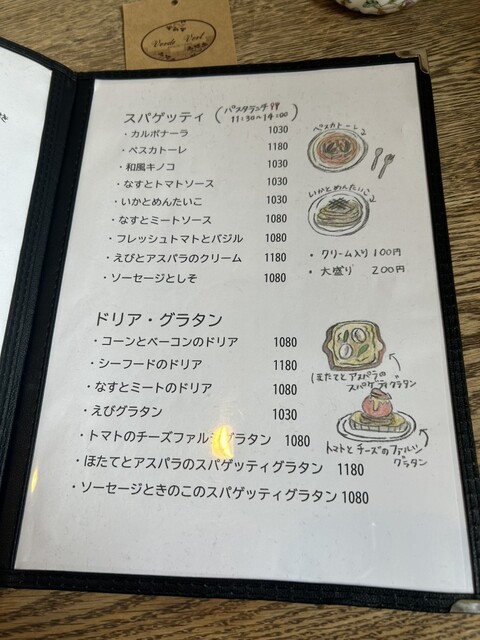 Verde Vert
スパゲッティ (パスタランチ
11:30~14:00)
・カルボナーラ 1030
・ペスカトーレ 1180
・和風キノコ 1030
・なすとトマトソース 1030
・いかとめんたいこ 1030
・なすとミートソース 1080
・フレッシュトマトとバジル 1080
・えびとアスパラのクリーム 1180
・ソーセージとしそ 1080
ペスカトーレ
いかとめんたいこ
・クリーム入り 100円
・大盛り 200円
ドリア・グラタン
・コーンとベーコンのドリア 1080
・シーフードのドリア 1180
・なすとミートのドリア 1080
・えびグラタン 1030
・トマトのチーズファルシグラタン 1080
・ほたてとアスパラのスパゲッティグラタン 1180
・ソーセージときのこのスパゲッティグラタン 1080
ほたてとアスパラの
スパゲティグラタン
トマトとチーズのファルシ
グラタン